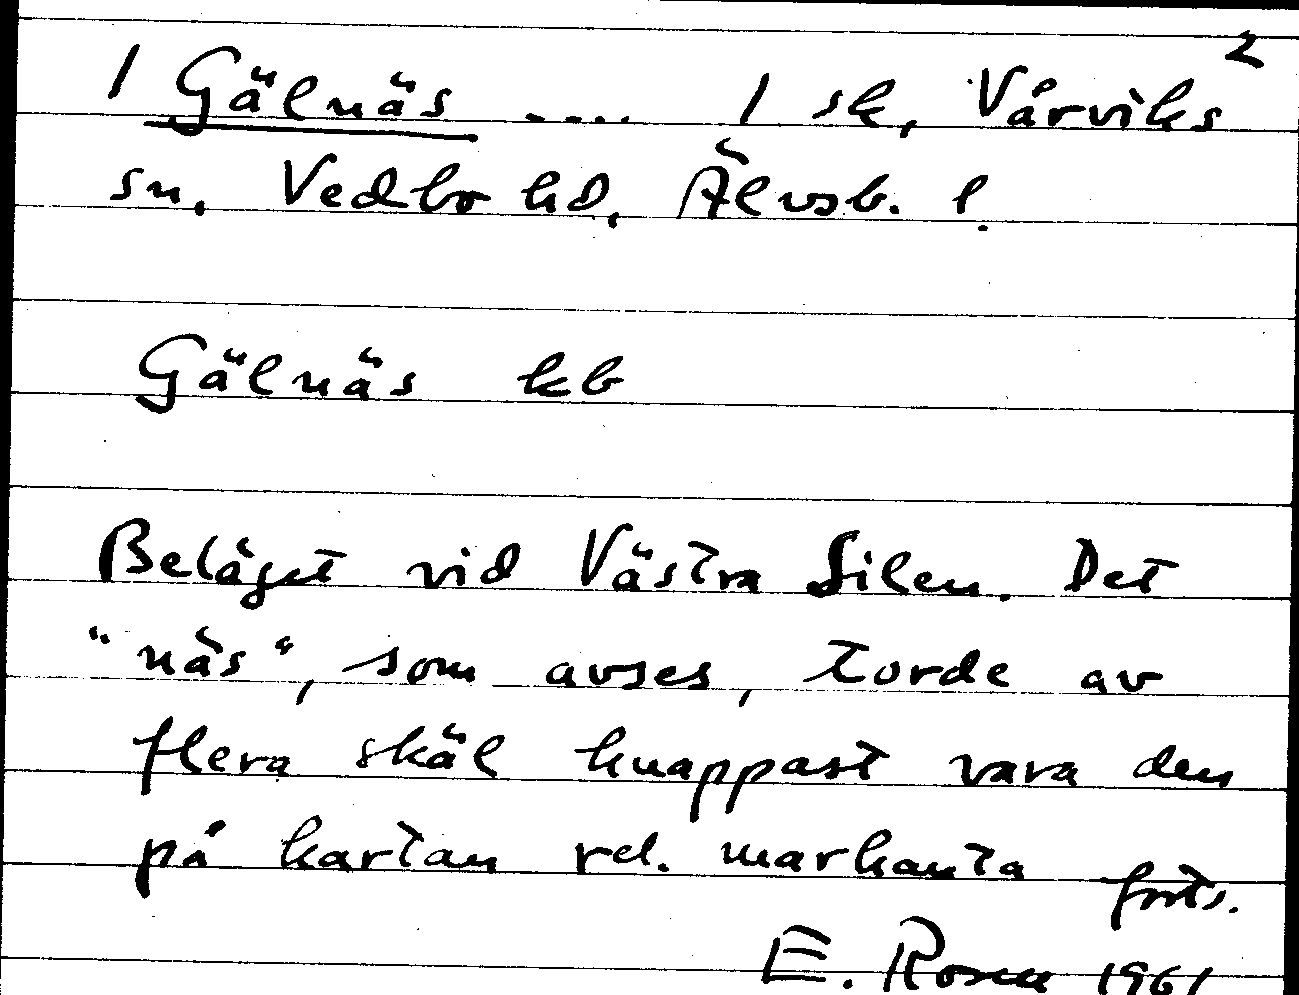 2
1 Gälnäs .... 1 sk, Vårviks
sn. Vedbo hd, Älvsb. l.
Gälnäs kb
Beläget vid Västra Silen. Det
"näs", som avses, torde av
flera skäl knappast vara den
på kartan rel. markanta forts.
E. Rosen 1961